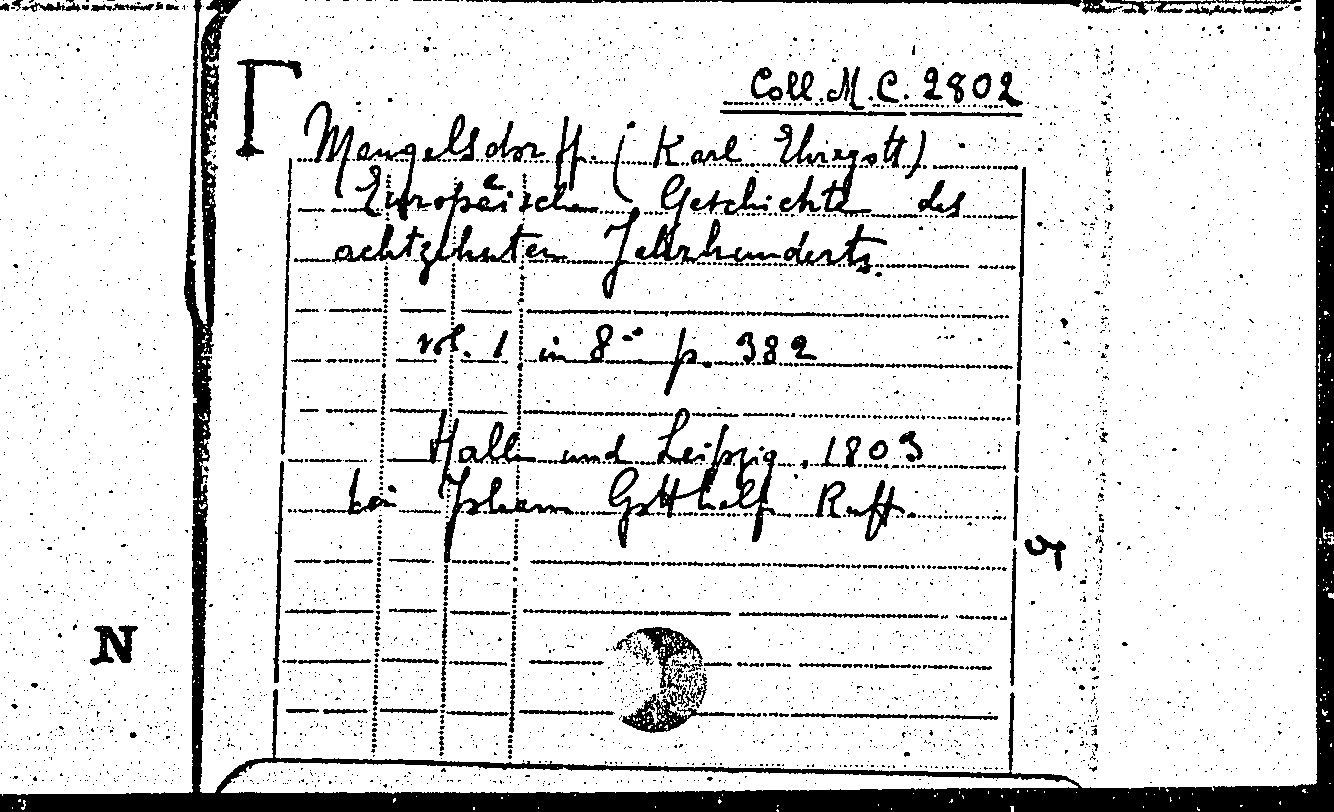 Γ
Coll. M. C. 2802
Mangelsdorff. (Karl Ehregott)
Europäische Geschichte des
achtzehnten Jahrhunderts.
vol. 1 in 8º p. 382
Halle und Leipzig. 1803
bei Johann Gotthelf Ruff.
N